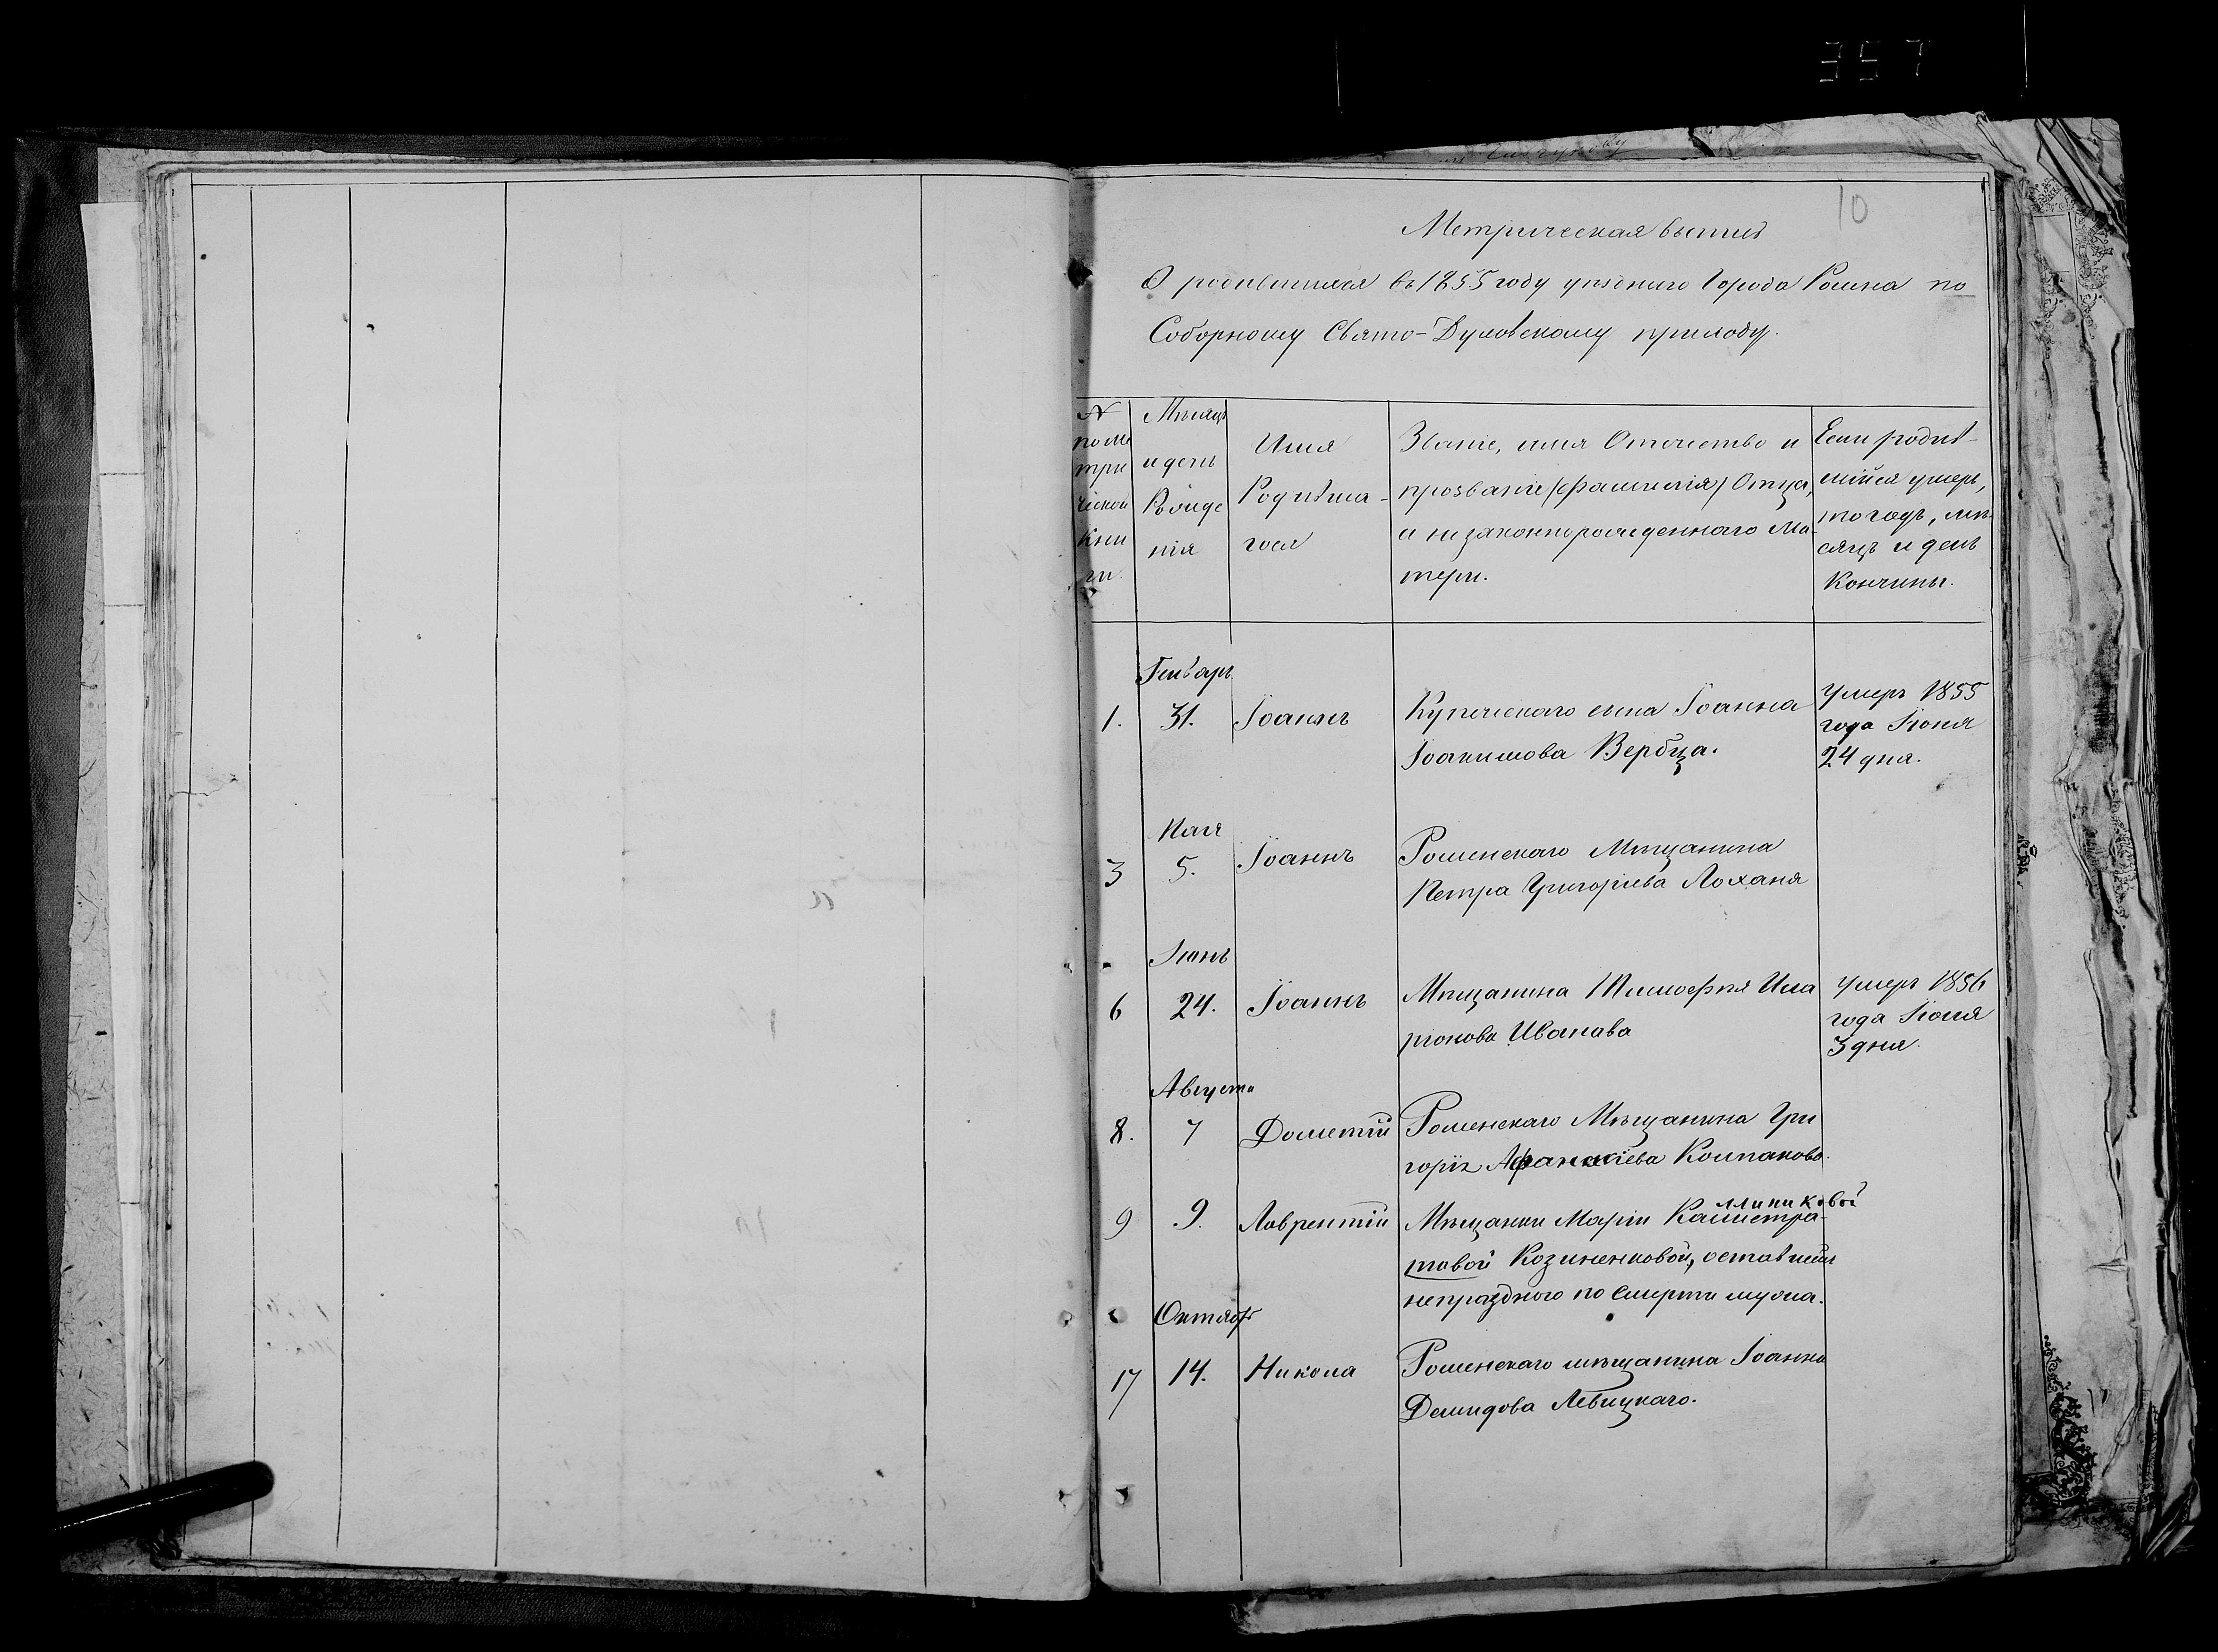 357
10
Метрическая выпись
О родившихся въ 1855 году уѣзднаго Города Ромна по
Соборному Свято-Духовскому приходу.
№ по ме трической Книги.
Мѣсяцъ и день Рожденія
Имя Родившагося
Званіе, имя Отечество и
прозваніе /фамилія/ Отца,
а незаконнорожденнаго Ма-
тери.
Если родив-
шійся умеръ,
то годъ, мѣ-
сяцъ и день
Кончины.
Генварь
1. 31. Іоаннъ Купеческаго сына Іоанна
Іоакимова Вербца.
Умеръ 1855
года Іюня
24 дня.
Мая
3 5. Іоаннъ Роменскаго Мѣщанина
Петра Григоріева Лоханя
Іюнь
6 24. Іоаннъ Мѣщанина Тимофѣя Ила
ріонова Иванова
Умеръ 1856
года Іюля
3 дня.
Августа
8. 7 Дометій Роменскаго Мѣщанина Гри
горія Афанасіева Компаково.
9 9. Лаврентій Мѣщанки Маріи Калистра-
товой Козиненковой, оставшейся
непраздного по смерти мужа.
Октябрь
17 14. Никола Роменскаго мѣщанина Іоанна
Демидова Левицкаго.